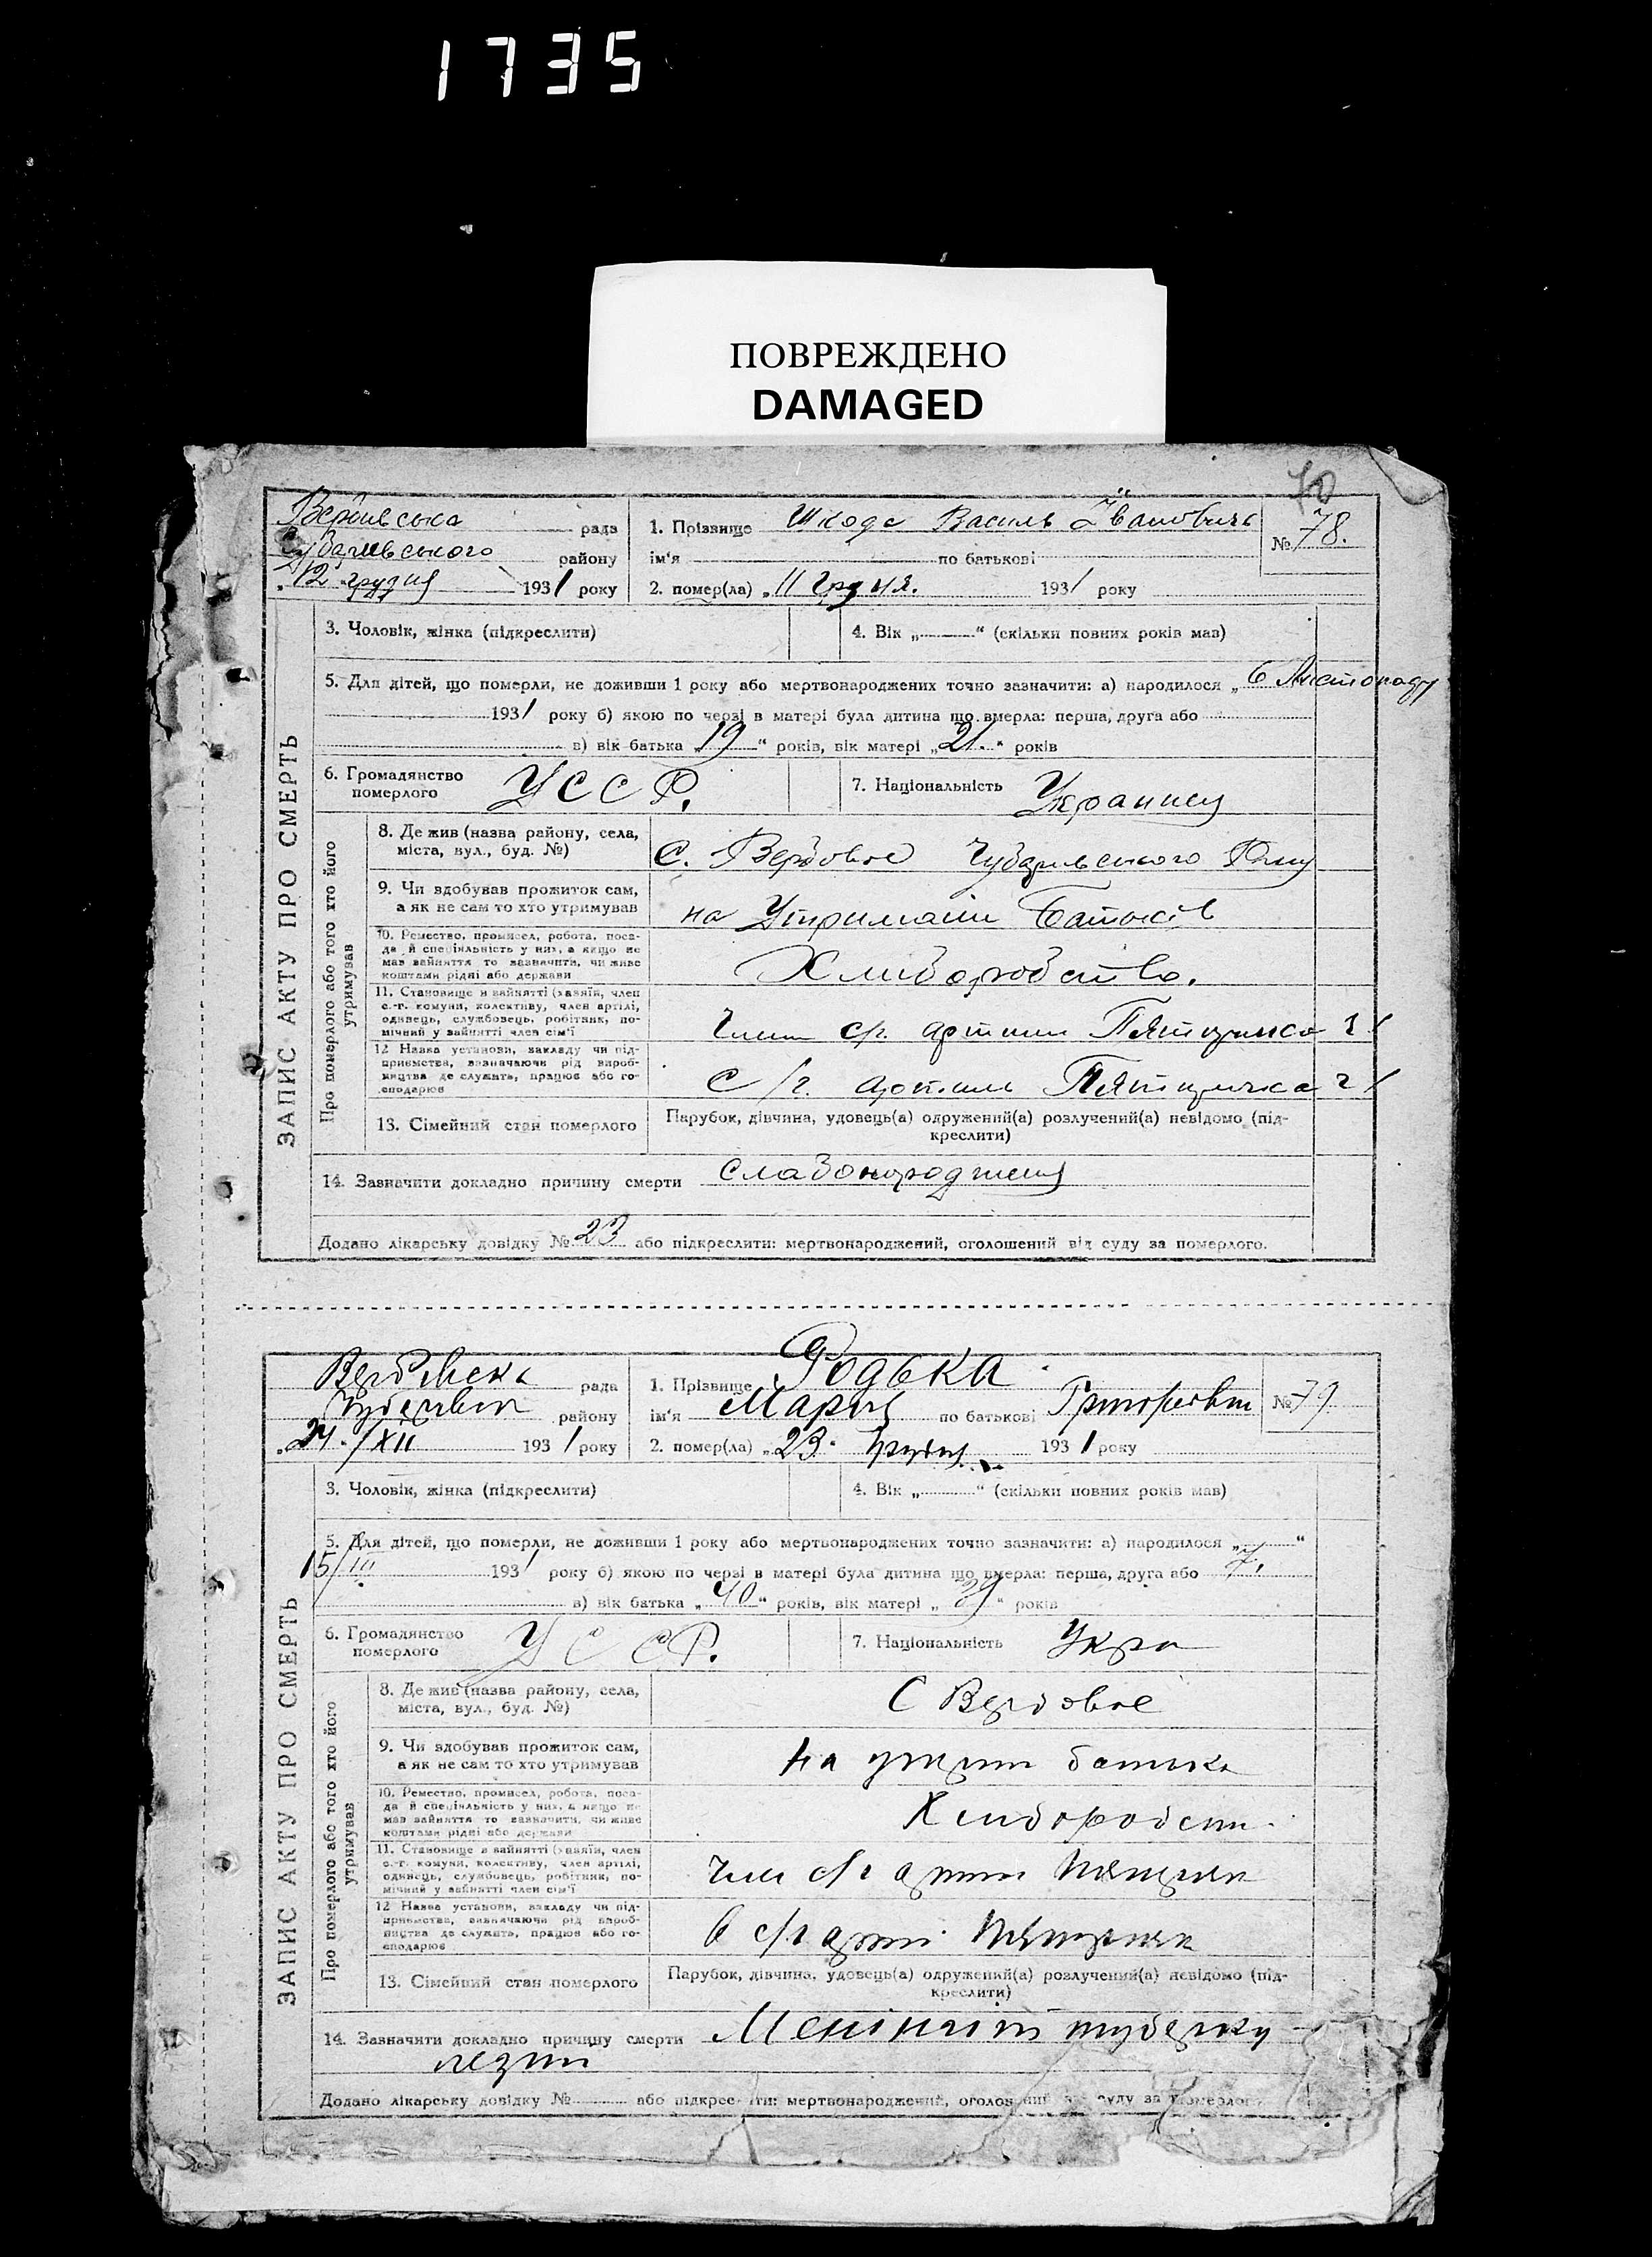 1735
ПОВРЕЖДЕНО
DAMAGED
70
рада
району
"12" грудня 1931 року
1. Прізвище Шкода Василь Іванович
ім'я по батькові
№ 78.
2. помер(ла) "11 грудня. 1931 року
ЗАПИС АКТУ ПРО СМЕРТЬ
3. Чоловік, жінка (підкреслити)
4. Вік „ “ (скільки повних років мав)
5. Для дітей, що померли, не доживши 1 року або мертвонароджених точно зазначити: а) народилося „6 Листопаду
1931 року б) якою по черзі в матері була дитина що вмерла: перша, друга або
в) вік батька „19“ років, вік матері „21.“ років
6. Громадянство
померлого
УССР.
7. Національність
Про померлого або того хто його
утримував
8. Де жив (назва району, села,
міста, вул., буд. №)
С. Вербовое
9. Чи здобував прожиток сам,
а як не сам то хто утримував
на Утримані Батьків
10. Ремество, промисел, робота, поса-
да й спеціяльність у них, а якщо не
мав зайняття то зазначити, чи живе
коштами рідні або держави
Хлиборобство.
11. Становище в зайнятті (хазяїн, член
с.-г. комуни, колективу, член артілі,
одинець, службовець, робітник, по-
мічний у зайнятті член сім'ї
Член с/г. артили Пятирічка
12 Назва установи, закладу чи під-
приємства, зазначаючи рід вироб-
ництва де служить, працює або го-
сподарює
С/г. артиль Пятирічка
13. Сімейний стан померлого
Парубок, дівчина, удовець(а) одружений(а) розлучений(а) невідомо (під-
креслити)
14. Зазначити докладно причину смерти
Додано лікарську довідку № 23 або підкреслити: мертвонароджений, оголошений від суду за померлого.
рада
району
"24./XII 1931 року
1. Прізвище Родька
ім'я Мария по батькові
№ 79
2. помер(ла) „23. грудня 1931 року
ЗАПИС АКТУ ПРО СМЕРТЬ
3. Чоловік, жінка (підкреслити)
4. Вік „ “ (скільки повних років мав)
5. Для дітей, що померли, не доживши 1 року або мертвонароджених точно зазначити: а) народилося „ “
15/III 1931 року б) якою по черзі в матері була дитина що вмерла: перша, друга або 7.
в) вік батька „40“ років, вік матері „39“ років
6. Громадянство
померлого
УССР.
7. Національність Укра
Про померлого або того хто його
утримував
8. Де жив (назва району, села,
міста, вул., буд. №)
С Вербовое
9. Чи здобував прожиток сам,
а як не сам то хто утримував
на батька
10. Ремество, промисел, робота, поса-
да й спеціяльність у них, а якщо не
мав зайняття то зазначити, чи живе
коштами рідні або держави
11. Становище в зайнятті (хазяїн, член
с.-г. комуни, колективу, член артілі,
одинець, службовець, робітник, по-
мічний у зайнятті член сім'ї
12 Назва установи, закладу чи під-
приємства, зазначаючи рід вироб-
ництва де служить, працює або го-
сподарює
13. Сімейний стан померлого
Парубок, дівчина, удовець(а) одружений(а) розлучений(а) невідомо (під-
креслити)
14. Зазначити докладно причину смерти Менінгіт туберку
Додано лікарську довідку № або підкреслити: мертвонароджений, суду за